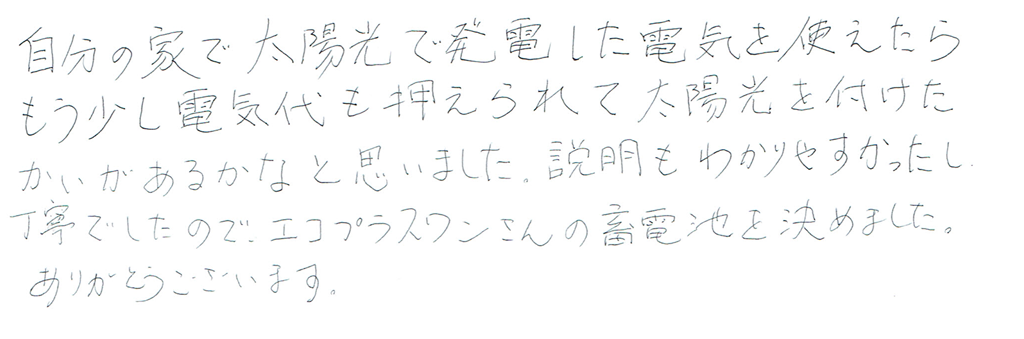 自分の家で太陽光で発電した電気を使えたら
もう少し電気代も押えられて太陽光を付けた
かいがあるかなと思いました。説明もわかりやすかったし
丁寧でしたので、エコプラスワンさんの畜電池を決めました。
ありがとうございます。